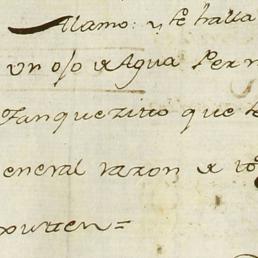 Alamo: y se halla
Un ojo de Agua Per
Tanquezitto que
eneral razon de